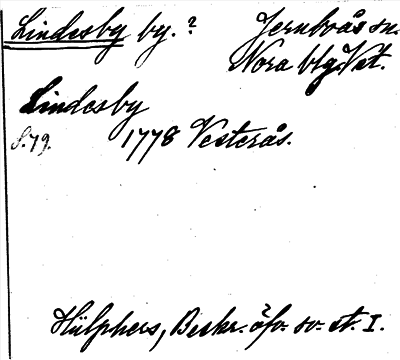 Lindesby by.? Jernboås sn.
Nora blg Vst.
Lindesby
s. 79. 1778 Vesterås.
Hülphers, Beskr. öfv. sv. st. I.